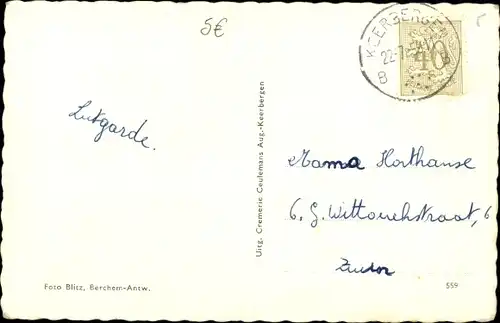 5€
KEERBERGEN
22-7
B
40
Lutgarde.
Uitg. Cremerie Ceulemans Aug.-Keerbergen
Mama Horthanse
6. G. Wittouckstraat, 6
Foto Blitz, Berchem-Antw.
559